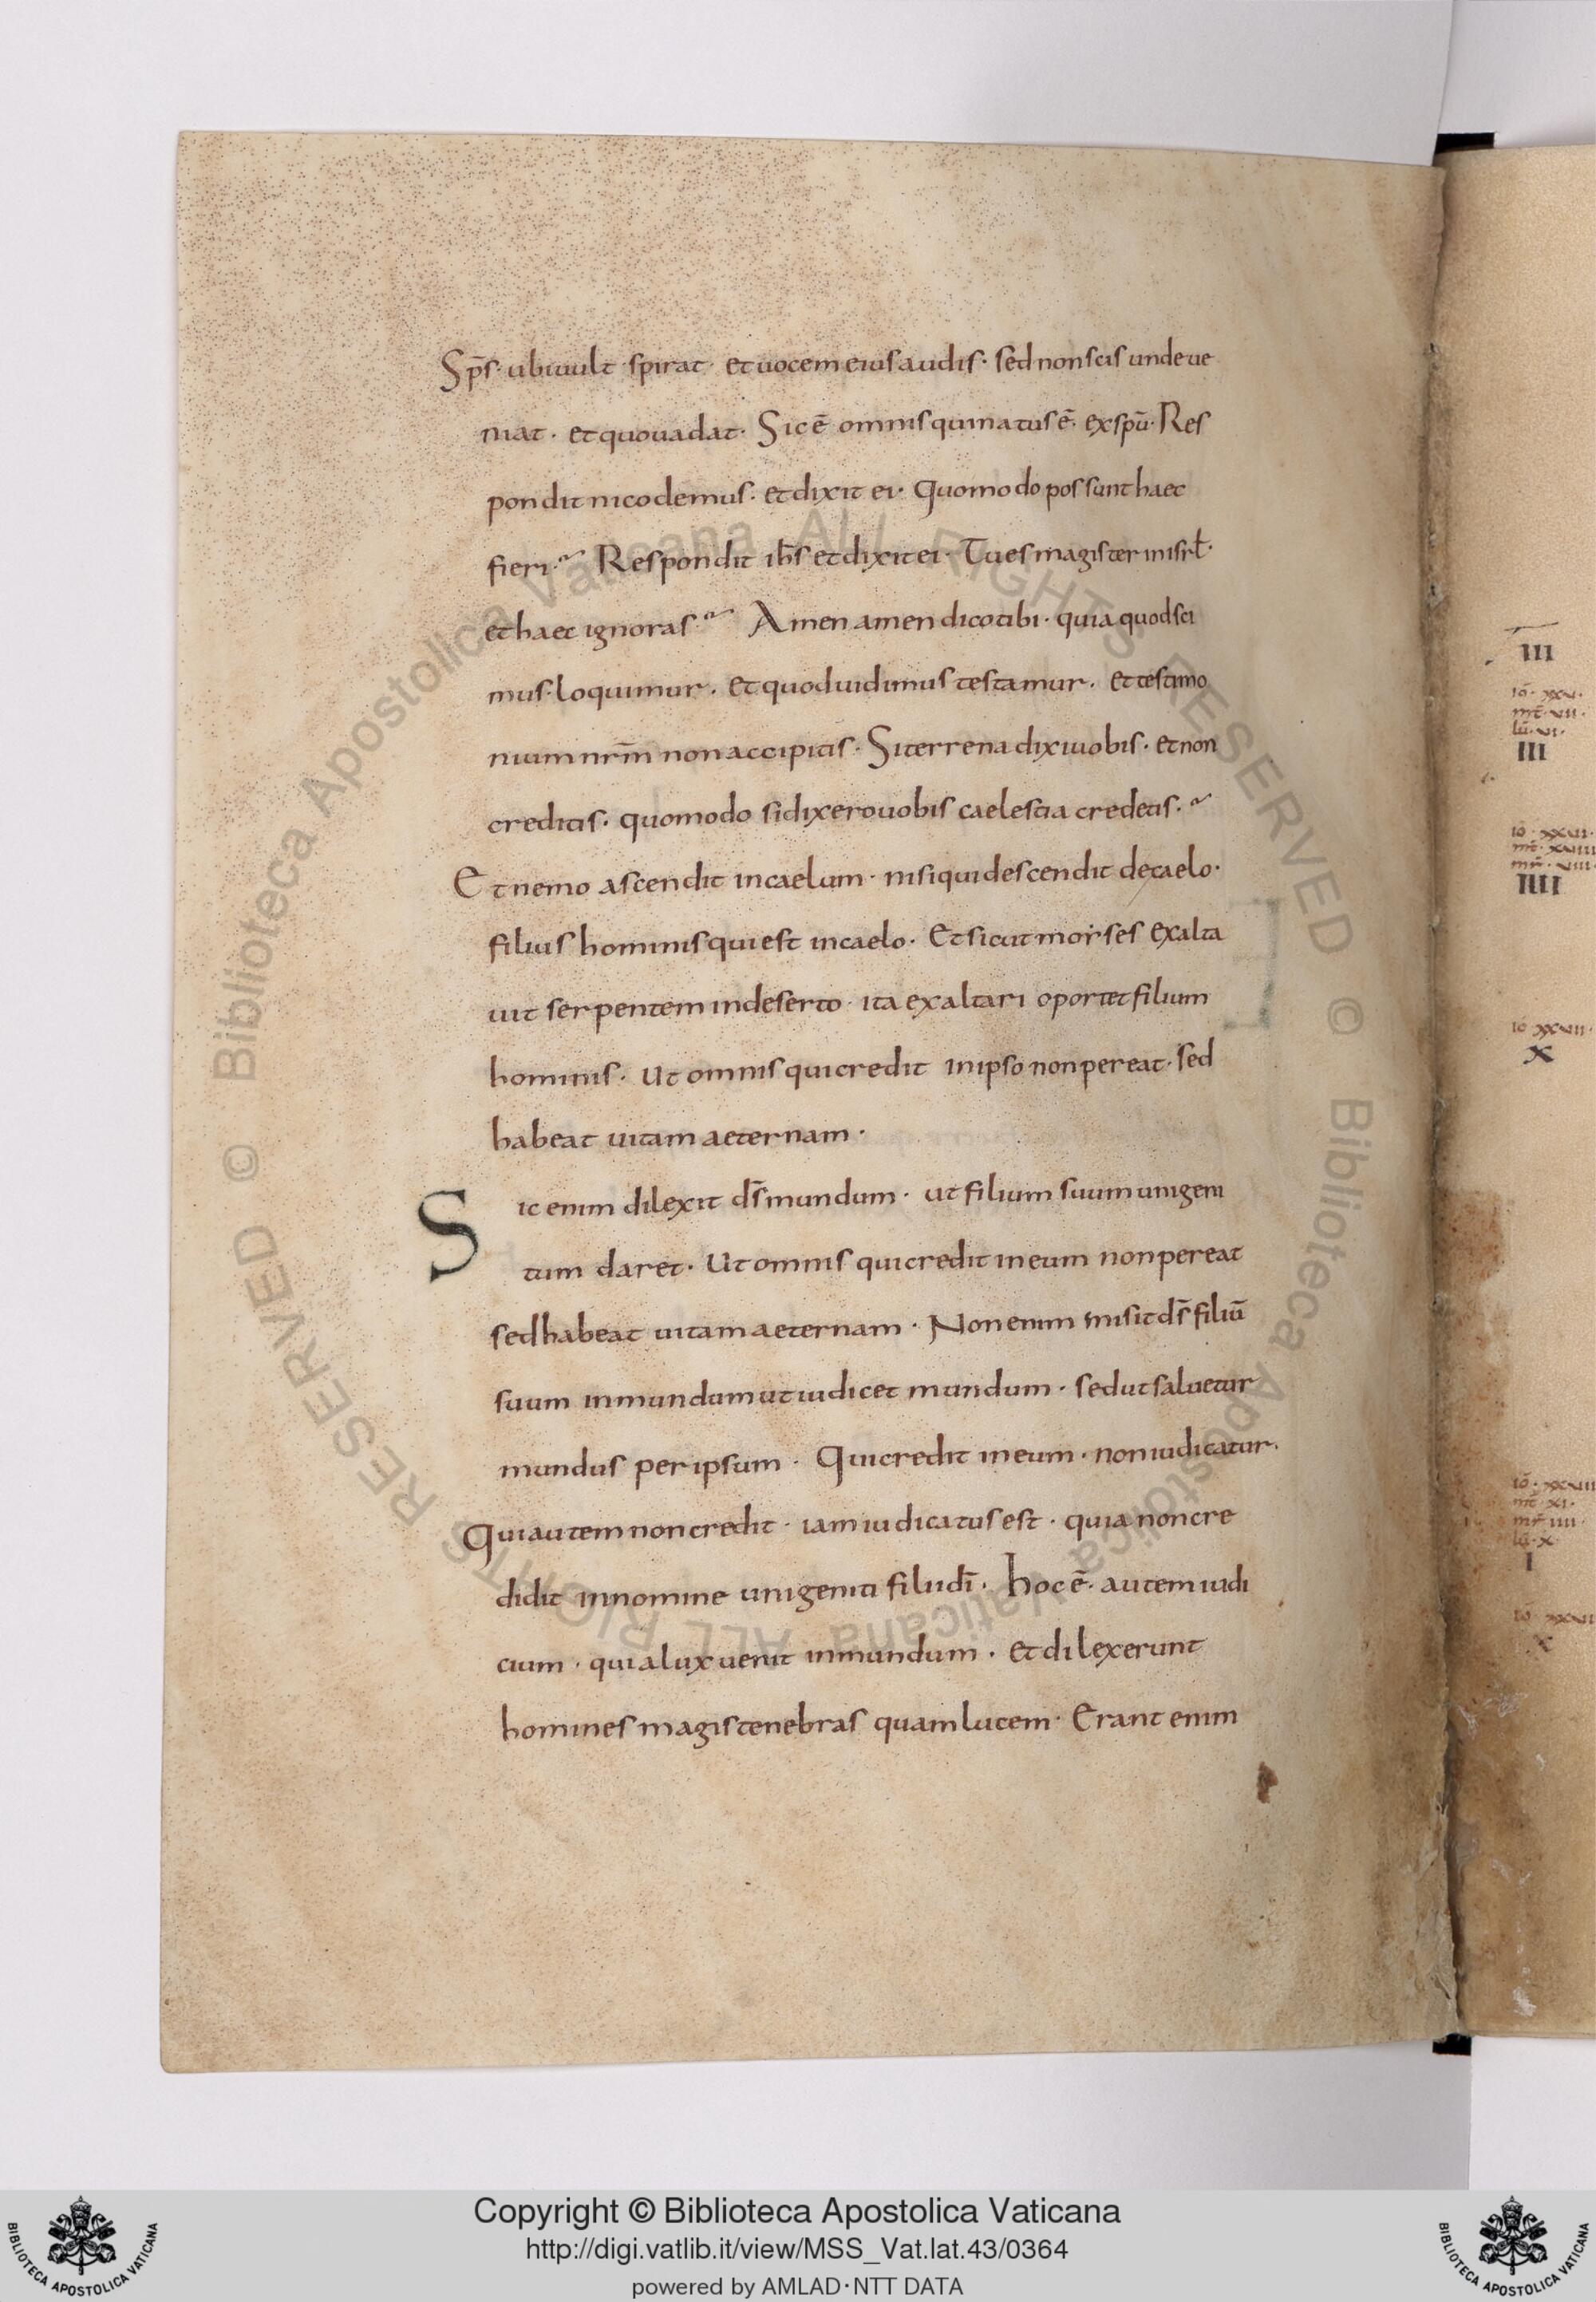 Sp̄s· ubi uult spirat· et uocem eius audis· sed non scis unde ue
niat· et quo uadat· Sic ē omnis qui natus ē· ex spū· Res
pondit nicodemus· et dixit ei· Quomodo possunt haec
fieri·~ Respondit ih̄s et dixit ei· Tu es magister in isrł·
et haec ignoras~ Amen amen dico tibi· quia quod sci
mus· loquimur· et quod uidimus testamur· et testimo
nium nr̄m non accipitis· Si terrena dixi uobis· et non
creditis· quomodo si dixero uobis caelestia credetis·~
Et nemo ascendit in caelum· nisi qui descendit de caelo·
filius hominis qui est in caelo· Et sicut moyses exalta
uit serpentem in deserto· ita exaltari oportet filium
hominis· ut omnis qui credit in ipso non pereat· sed
habeat uitam aeternam·
Sic enim dilexit d̄s mundum· ut filium suum unigeni
tum daret· Ut omnis qui credit in eum non pereat
sed habeat uitam aeternam· Non enim misit d̄s filiū
suum in mundum ut iudicet mundum· sed ut saluetur
mundus per ipsum· Qui credit in eum· non iudicatur·
Qui autem non credit· iam iudicatus est· quia non cre
didit in nomine unigeniti filii dī· Hoc ē· autem iudi
cium· quia lux uenit in mundum· et dilexerunt
homines magis tenebras quam lucem· Erant enim
III
III
IIII
X
I
X
© Biblioteca Apostolica Vaticana ALL RIGHTS RESERVED © Biblioteca Apostolica Vaticana ALL RIGHTS RESERVED
Copyright © Biblioteca Apostolica Vaticana
http://digi.vatlib.it/view/MSS_Vat.lat.43/0364
powered by AMLAD·NTT DATA
BIBLIOTECA APOSTOLICA VATICANA
BIBLIOTECA APOSTOLICA VATICANA